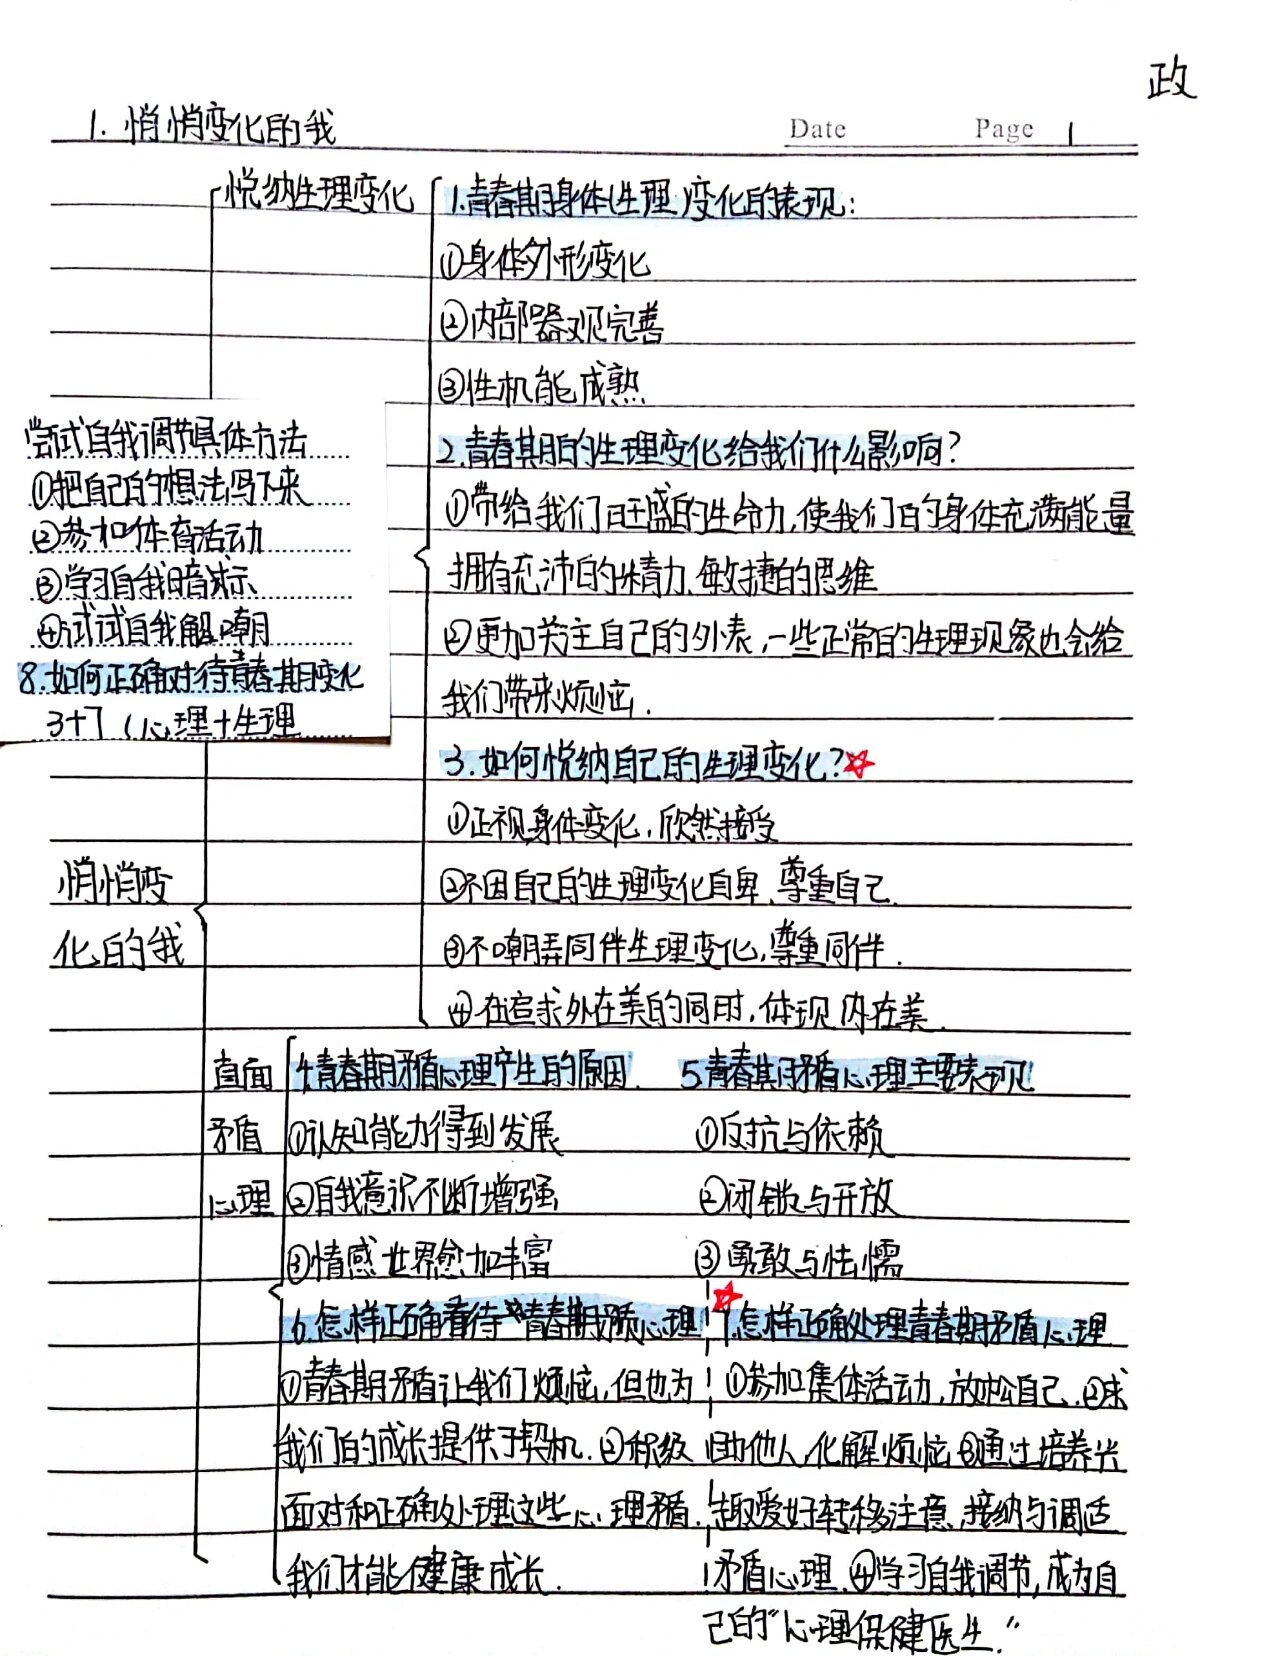 政
1. 悄悄变化的我
Date Page 1
悦纳生理变化
1.青春期身体(生理)变化的表现:
①身体外形变化
②内部器观完善
③性机能成熟
2.青春期的生理变化给我们什么影响?
①带给我们旺盛的生命力,使我们的身体充满能量
拥有充沛的精力、敏捷的思维
②更加关注自己的外表,一些正常的生理现象也会给
我们带来烦恼.
3.如何悦纳自己的生理变化?
①正视身体变化,欣然接受
②不因自己的生理变化自卑、尊重自己.
③不嘲弄同伴生理变化,尊重同伴.
④在追求外在美的同时,体现内在美.
尝试自我调节具体方法
①把自己的想法写下来
②参加体育活动
③学习自我暗示
④试试自我解嘲
8.如何正确对待青春期变化
3+7(心理+生理
悄悄变
化的我
直面
矛盾
心理
4青春期矛盾心理产生的原因.
①认知能力得到发展
②自我意识不断增强
③情感世界愈加丰富
5青春期矛盾心理主要表现
①反抗与依赖
②闭锁与开放
③勇敢与怯懦
6.怎样正确看待青春期矛盾心理
①青春期矛盾让我们烦恼,但也为
我们的成长提供了契机.②积极
面对和正确处理这些心理矛盾.
我们才能健康成长.
7.怎样正确处理青春期矛盾心理
①参加集体活动,放松自己.②求
助他人,化解烦恼③通过培养兴
趣爱好转移注意,接纳与调适
矛盾心理.④学习自我调节,成为自
己的“心理保健医生.”